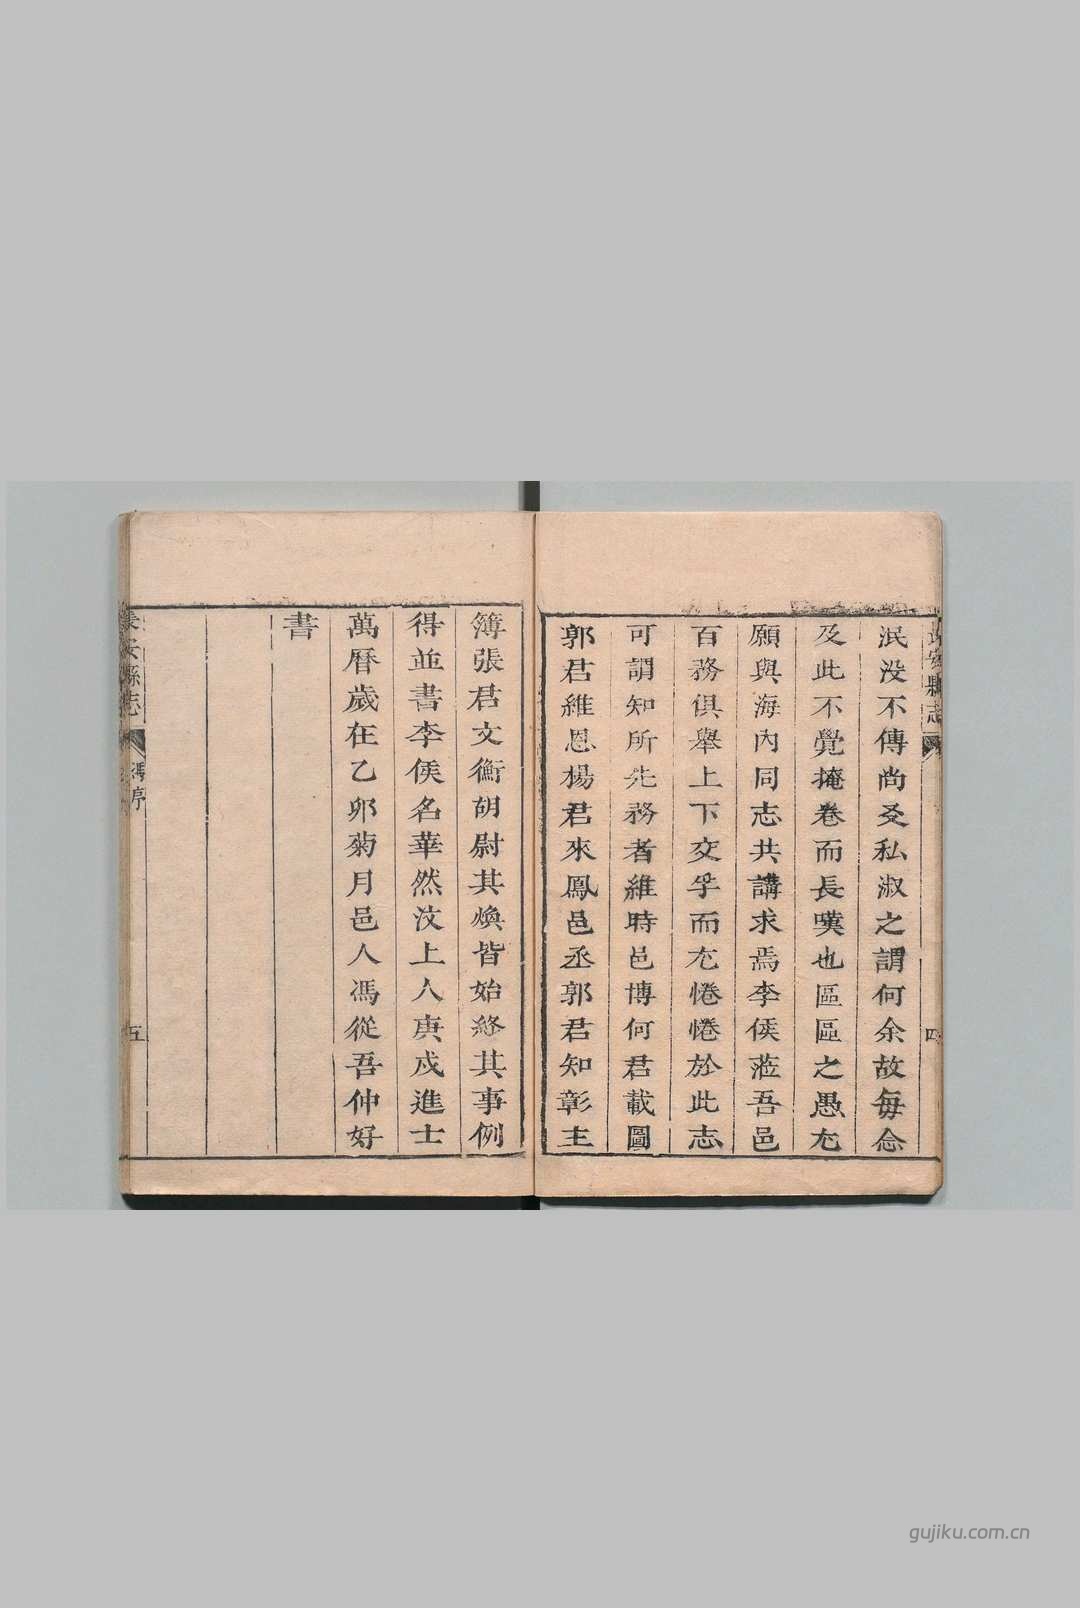 泯没不傳尚爻私淑之謂何余故每念
及此不覺掩卷而長嘆也區區之愚尤
願與海內同志共講求焉李侯蒞吾邑
百務俱舉上下交孚而尤惓惓於此志
可謂知所先務者維時邑博何君載圖
郭君維恩楊君來鳳邑丞郭君知彰主
簿張君文衡胡尉其煥皆始終其事例
得並書李侯名華然汶上人庚戌進士
萬曆歲在乙卯菊月邑人馮從吾仲好
書
安縣志
四
長安縣志
馮序
五
gujiku.com.cn